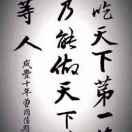 吃天下第一
乃能做天下
等人
咸豐十年曾國藩